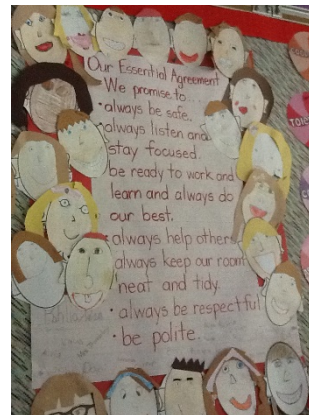 Our Essential Agreement
We promise to...
• always be safe.
• always listen and
stay focused.
be ready to work and
learn and always do
our best.
• always help others
always keep our room
neat and tidy.
• always be respectful
• be polite.